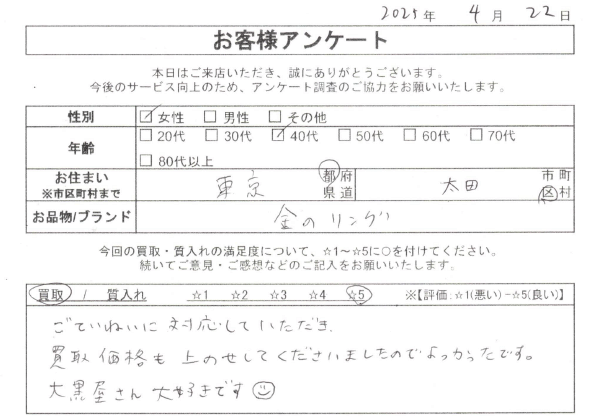 2025年 4月 22日
お客様アンケート
本日はご来店いただき、誠にありがとうございます。
今後のサービス向上のため、アンケート調査のご協力をお願いいたします。
性別 ☑女性 □男性 □その他
年齢 □20代 □30代 ☑40代 □50代 □60代 □70代
□80代以上
お住まい ※市区町村まで 東京 都府県道 太田 市町区村
お品物/ブランド 金のリング
今回の買取・質入れの満足度について、☆1～☆5に○を付けてください。
続いてご意見・ご感想などのご記入をお願いいたします。
買取 / 質入れ ☆1 ☆2 ☆3 ☆4 ☆5 ※【評価:☆1(悪い)-☆5(良い)】
ごていねいに対応していただき
買取価格も上のせしてくださいましたのでよかったです。
大黒屋さん大好きです☺